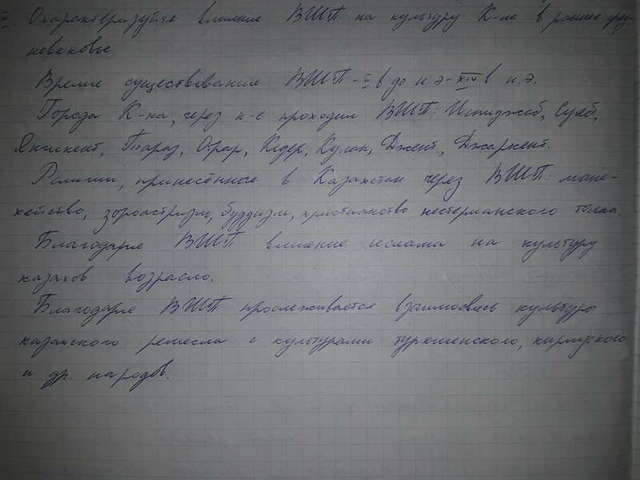 Охарактеризуйте влияние ВШП на культуру К-на в раннее сред
невековье
Время существования ВШП - II в до н.э - XIV в н.э.
Города К-на, через к-е проходил ВШП: Испиджаб, Суяб,
Янгикент, Тараз, Отрар, Кедер, Кулан, Дженд, Джаркент.
Религии, принесённые в Казахстан через ВШП: мане-
хейство, зороастризм, буддизм, христианство несторианского толка.
Благодаря ВШП влияние ислама на культуру
казахов возрасло.
Благодаря ВШП прослеживается взаимосвязь культуры
казахского ремесла с культурами туркменского, киргизского
и др. народов.